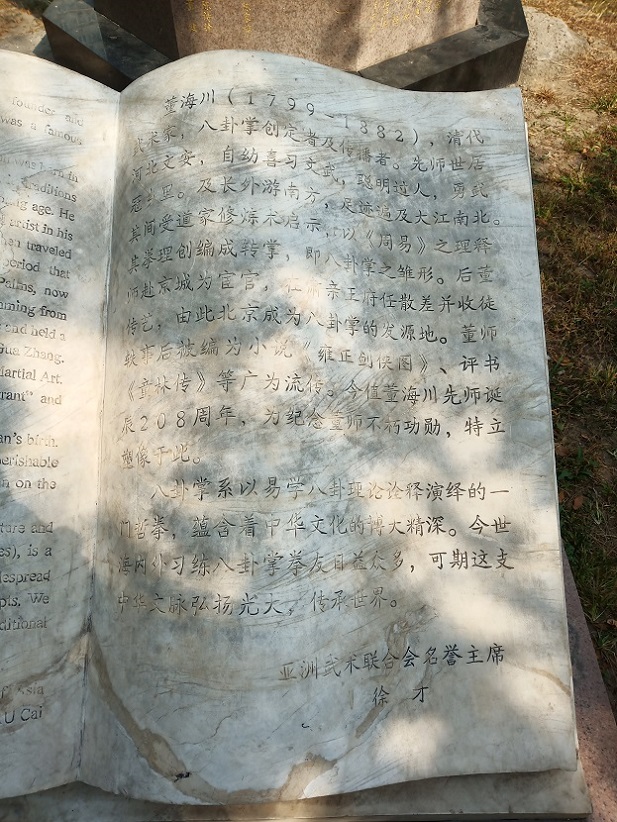 founder and
was a famous
was born in
traditions
ng age. He
artist in his
traveled
period that
Palms, now
mming from
and held a
Gua Zhang.
Martial Art.
rant" and
an's birth.
perishable
n on the
ture and
es), is a
despread
pts. We
ditional
of Asia
U Cai
董海川（1799-1882），清代
武术家，八卦掌创定者及传播者。先师世居
河北文安，自幼喜习文武，聪明过人，勇武
冠乡里。及长外游南方，足迹遍及大江南北。
其间受道家修炼术启示，以《周易》之理释
其拳理创编成转掌，即八卦掌之雏形。后董
师赴京城为宦官，在肃亲王府任散差并收徒
传艺，由此北京成为八卦掌的发源地。董师
轶事后被编为小说《雍正剑侠图》、评书
《童林传》等广为流传。今值董海川先师诞
辰208周年，为纪念董师不朽功勋，特立
塑像于此。
八卦掌系以易学八卦理论诠释演绎的一
门哲拳，蕴含着中华文化的博大精深。今世
海内外习练八卦掌拳友日益众多，可期这支
中华文脉弘扬光大，传承世界。
亚洲武术联合会名誉主席
徐 才